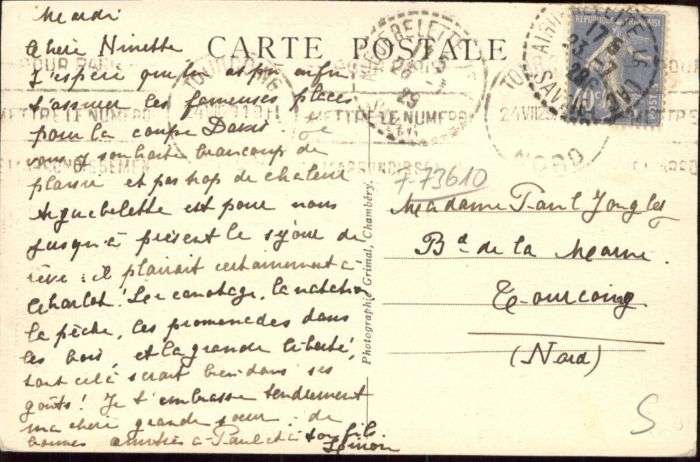 Mardi
CARTE POSTALE
Chère Ninette
J'espère que tu as pu enfin
t'assurer les fameuses places
pour la coupe Davis je
vous y souhaite beaucoup de
plaisir et pas trop de chaleur
Aiguebelette est pour nous
jusqu'à présent le séjour de
rêve : il plairait certainement à
Charlot ! Le canotage, la natation
la pêche, les promenades dans
les bois, et la grande liberté,
tout celà serait bien dans ses
goûts ! Je t'embrasse tendrement
ma chère grande soeur ; de
bonnes amitiés à Paul et à ton fils
F-73610
Madame Paul Jongley
Bd de la Marne
Tourcoing
(Nord)
Photographie Grimal, Chambéry.
REPUBLIQUE FRANÇAISE
40c
POSTES
AIGUEBELETTE LE LAC
SAVOIE
TOURCOING
24 VII 29
NORD
METTRE LE NUMERO
S